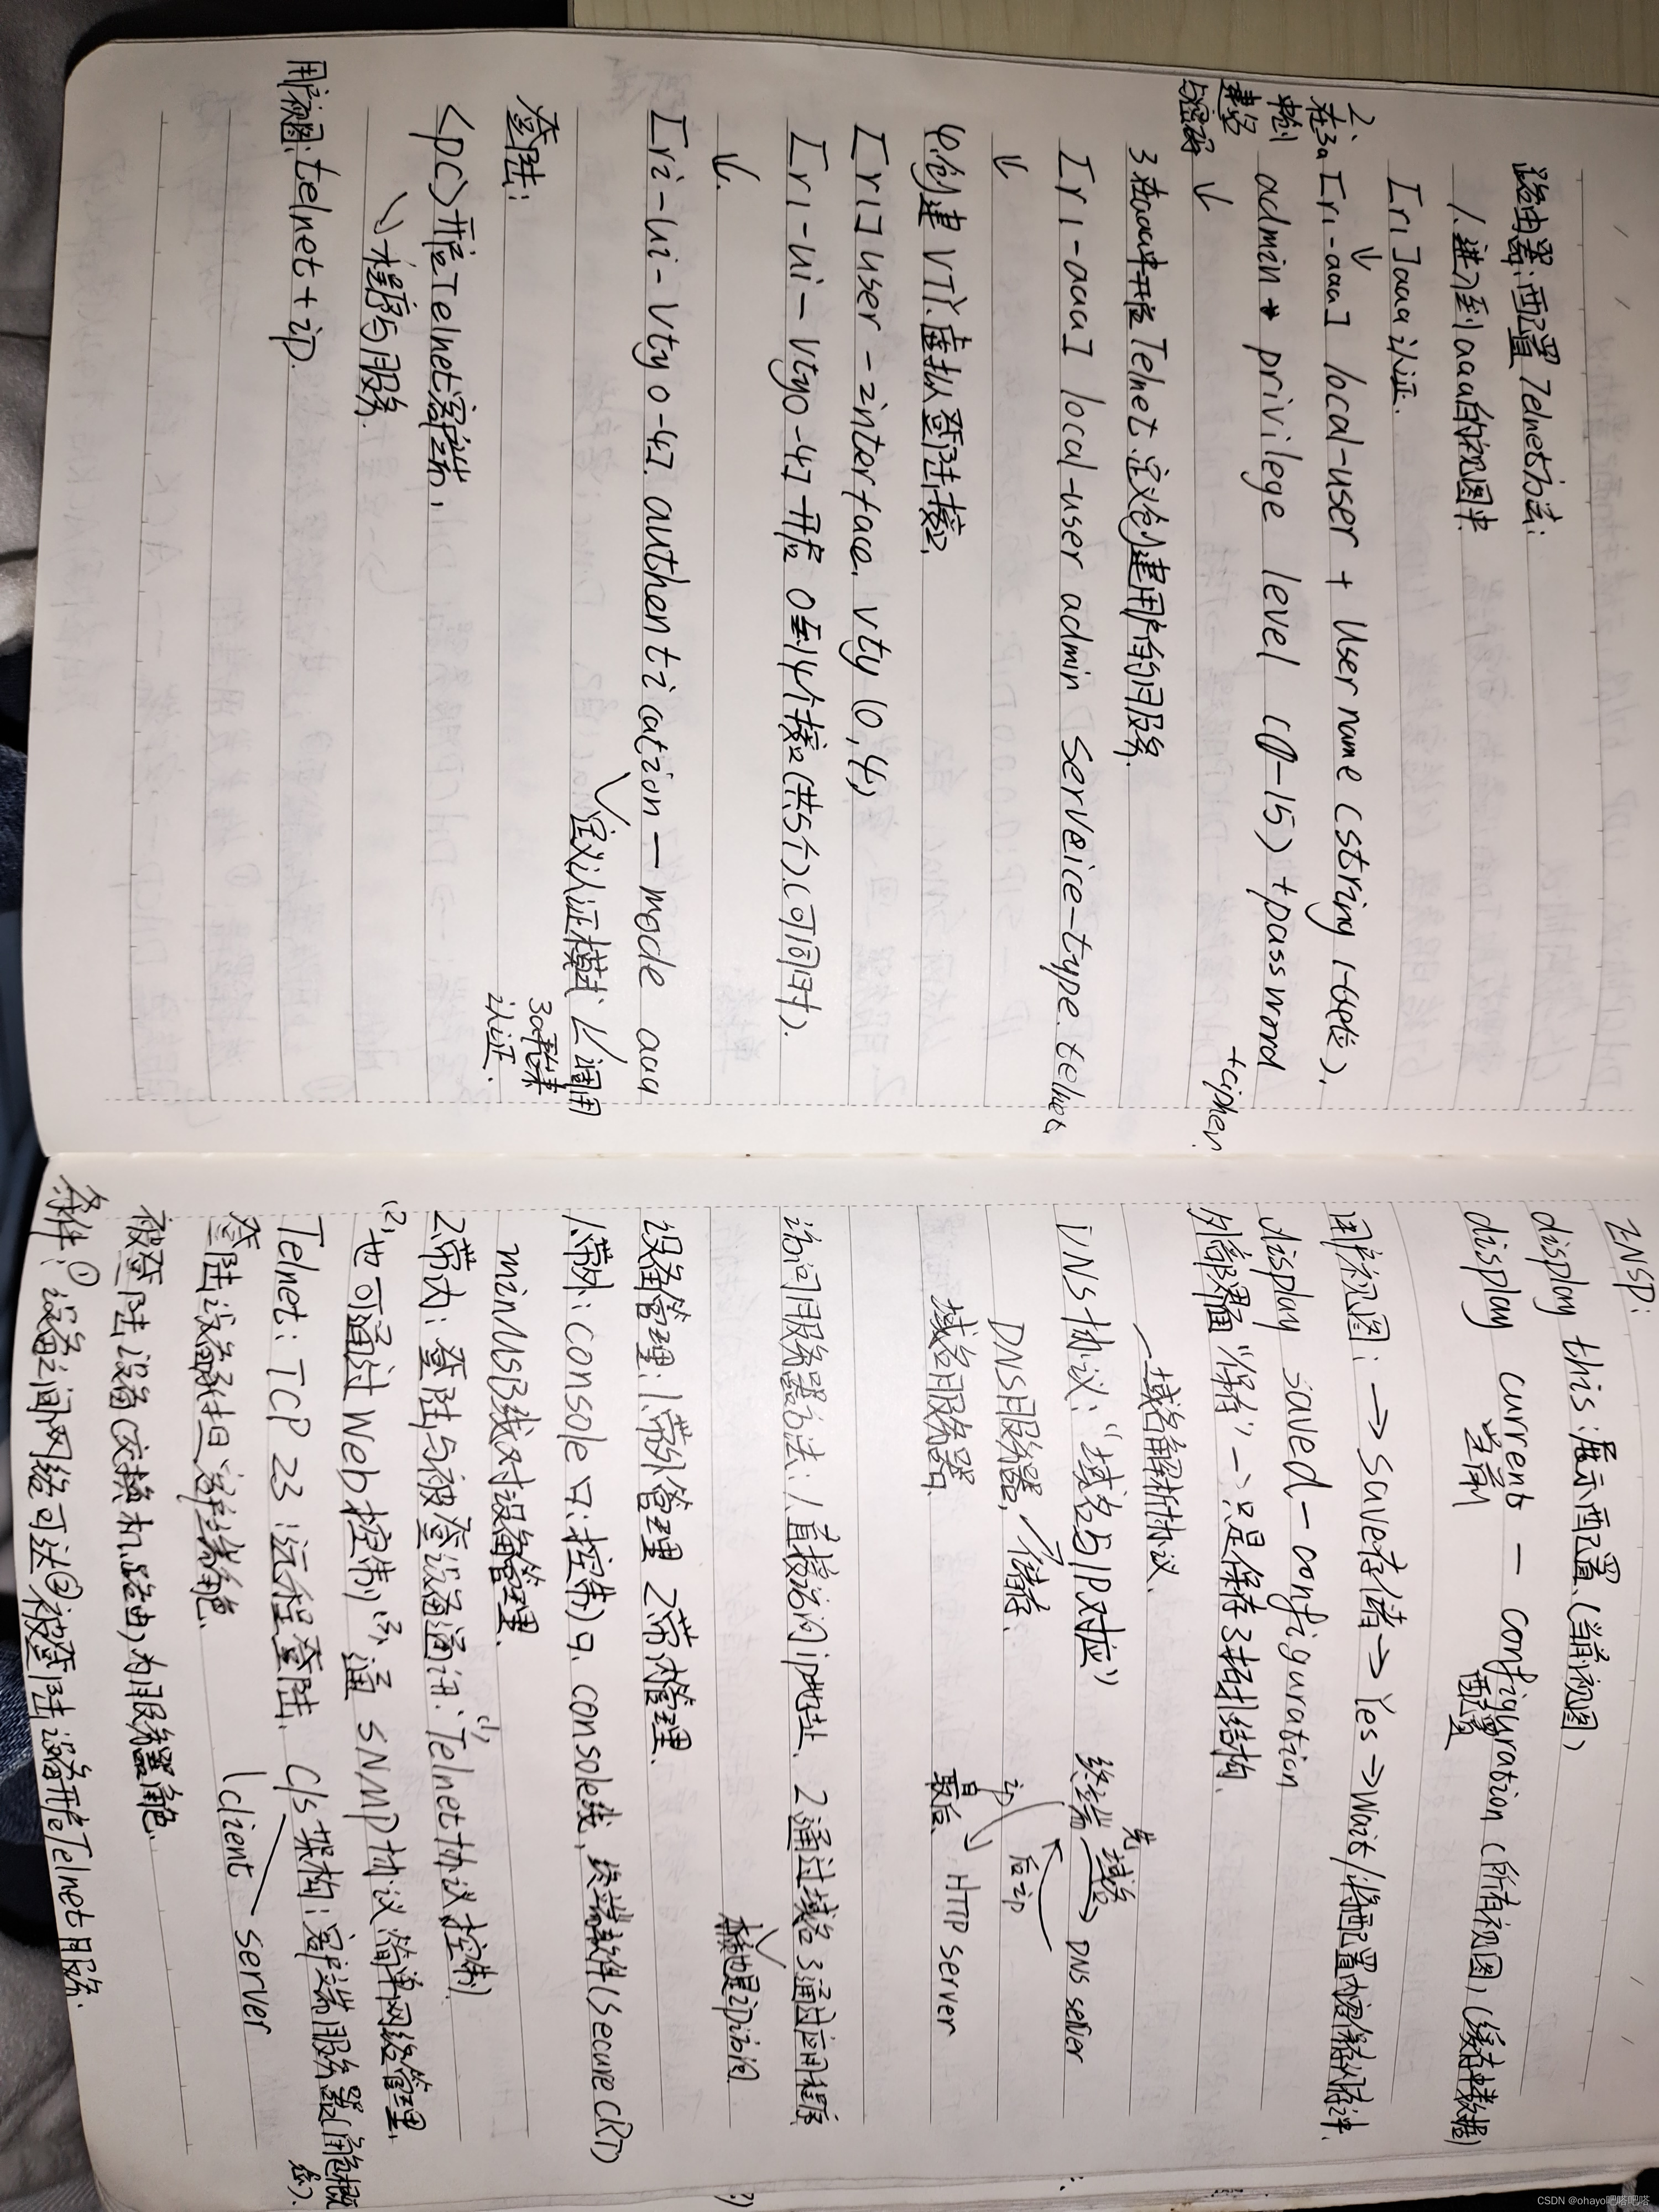 路由器:配置Telnet方法:
1.进入到aaa的视图中
[r1]aaa 认证.
↓
2、在3a中创建账号与密码
[r1-aaa] local-user + User name (string 1-64位).
admin * privilege level (0-15) + password
+cipher.
↓
3.在aaa中开启Telnet.定义创建用户的服务.
[r1-aaa] local-user admin serveice-type. telnet.
↓
4.创建VTY.虚拟登陆接口.
[r1] user-interface. vty (0,4)
[r1-ui-vty0-4] 开启0到4个接口(共5个).(可同时).
↓.
[r1-ui-vty0-4]. authentication-mode aaa
定义认证模式 调用3a来认证.
登陆:
<pc>开启Telnet客户端,
↘程序与服务.
用户视图:telnet+ip.
ENSP:
display this:展示配置(当前视图)
display current - configuration (所有视图)(缓存中数据)
当前 配置
用户视图:→save存储→Yes→Wait/将配置内容储存到内存中.
display saved-configuration
外部界面“保存”→只是保存了拓扑结构.
域名解析协议.
DNS协议:“域名与IP对应” 终端 先域名→ DNS server
DNS服务器,→储存. ip 后ip
域名服务器. 最后 HTTP server
访问服务器方法:1.直接访问ip地址. 2通过域名 3通过应用程序
本质也是ip访问.
设备管理:1.带外管理 2.带内管理.
1.带外:console口:控制口. console线,终端软件(secure CRT)
miniUSB线对设备管理.
2.带内:登陆与被登设备通讯:(1)Telnet协议控制
(2)也可通过Web控制(3)通 SNMP协议(简单网络管理.
Telnet:TCP 23:远程登陆. C/S架构:客户端服务器(角色概念).
client server
登陆设备承担客户端角色.
被登陆设备(交换机.路由)为服务器角色.
条件:①设备之间网络可达②被登陆设备开启Telnet服务.
CSDN @ohayo吧嗒吧嗒